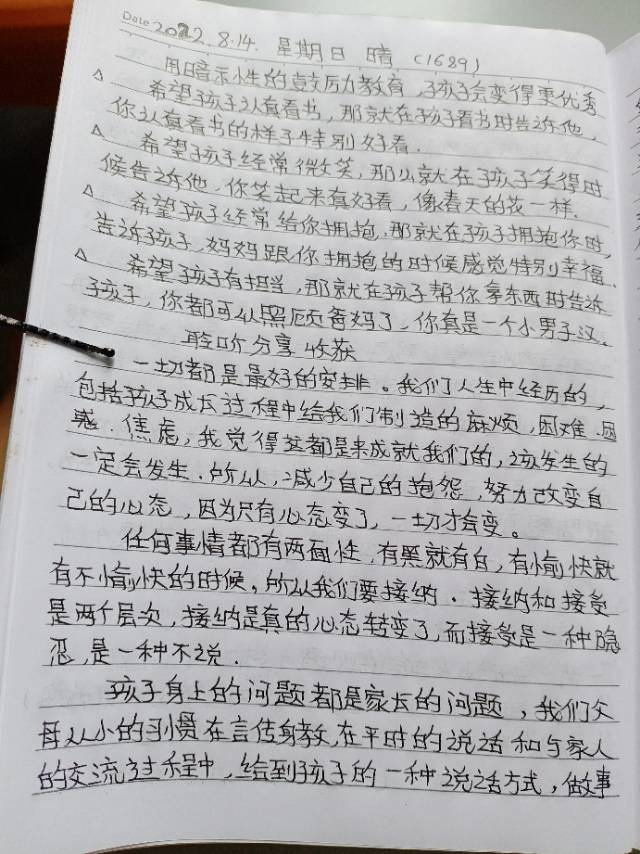 Date 2022.8.14. 星期日 晴 (1689)
用暗示性的鼓励教育,孩子会变得更优秀
△ 希望孩子认真看书,那就在孩子看书时告诉他,
你认真看书的样子特别好看.
△ 希望孩子经常微笑,那么就在孩子笑得时
候告诉他,你笑起来真好看,像春天的花一样.
△ 希望孩子经常给你拥抱.那就在孩子拥抱你时,
告诉孩子,妈妈跟你拥抱的时候感觉特别幸福.
△ 希望孩子有担当,那就在孩子帮你拿东西时告诉
孩子,你都可以照顾爸妈了,你真是一个小男子汉。
聆听分享收获
一切都是最好的安排。我们人生中经历的,
包括孩子成长过程中给我们制造的麻烦,困难.困
惑.焦虑,我觉得这都是来成就我们的,该发生的
一定会发生.所以,减少自己的抱怨,努力改变自
己的心态,因为只有心态变了,一切才会变。
任何事情都有两面性,有黑就有白,有愉快就
有不愉快的时候,所以我们要接纳.接纳和接受
是两个层次,接纳是真的心态转变了,而接受是一种隐
忍,是一种不说.
孩子身上的问题都是家长的问题,我们父
母从小的习惯在言传身教,在平时的说话和与家人
的交流过程中,给到孩子的一种说话方式,做事